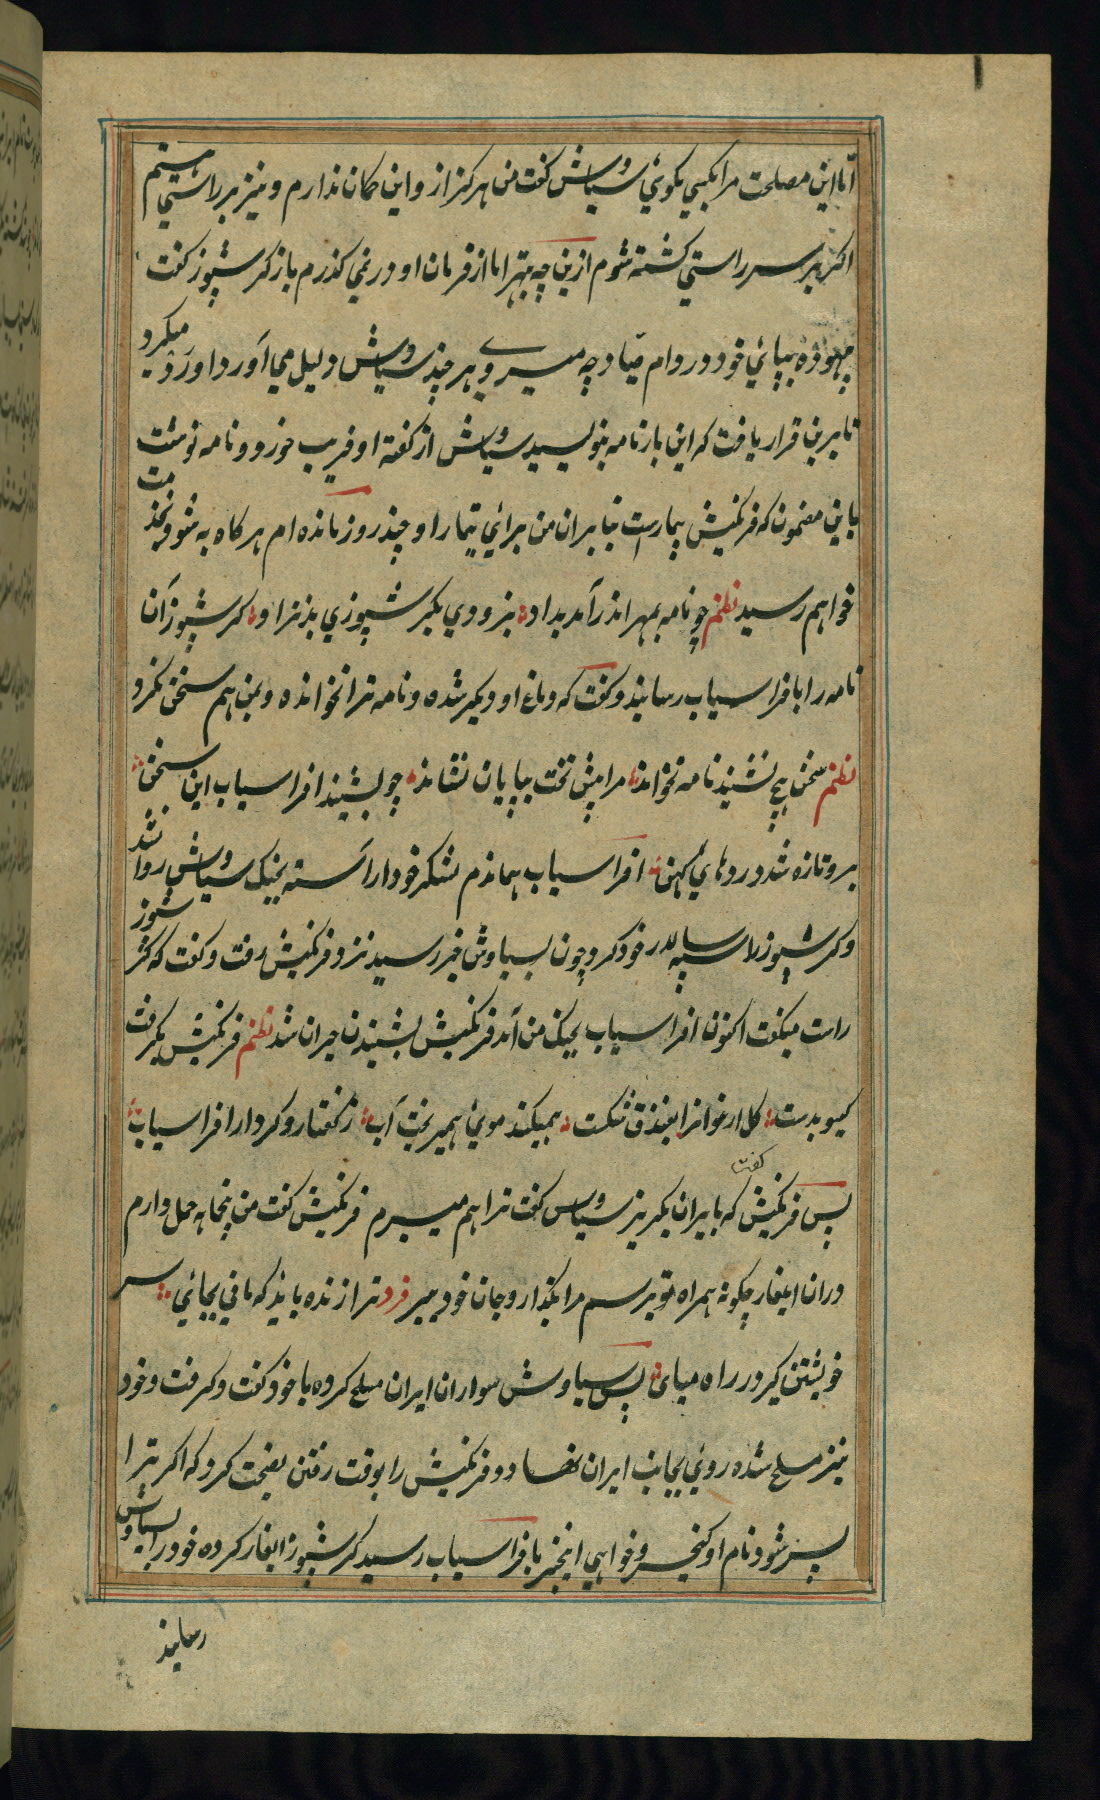 اما این مصلحت مرا بکسی نکوئی سیاوش کفت من هرکز از و این کمان ندارم و نیز بر راستی هستم
اکر بر سر راستی کشته شوم ازین چه بهتر اما از فرمان او در نمی کذرم باز کرشیوز کفت
بپای خود در دام صیاد چه میروی و هر چند سیاوش دلیل می آورد او رد میکرد
تا برین قرار یافت که این بار نامه بنویسد سیاوش از کفته او فریب خورد و نامه نوشت
باین مضمون که فرنکیش بیمارست بنا بران من برای تیمار او چند روز مانده ام هرکاه به شود بخدمت
خواهم رسید نظم چو نامه بمهر اندر آمد بداد بزودی بکرشیوزی بدنژاد کرشیوز آن
نامه را با فراسیاب رسانید و کفت که دماغ او دیکر شده و نامه ترا نخوانده و بمن هم سخن نکرد
نظم سخن هیچ نشنید نامه نخواند مرا پیش تخت بپایان نشاند چو بشنید افراسیاب این سخن
برو تازه شد دردهای کهن افراسیاب هماندم لشکر خود اراسته بجنک سیاوش روان شد
و کرشیوز را سپه سالار خود کرد چون بسیاوش خبر رسید نزد فرنکیش رفت و کفت که کرشیوز
راست میکفت اکنون افراسیاب بجنک من آمد فرنکیش بشنیدن حیران شد نظم فرنکیش بکرفت
کیسو بدست کل ارغوانرا بفندق شکست همیکند موی همیریخت آب ز کفتار و کردار افراسیاب
پس فرنکیش کفت که بایران بکریز سیاوش کفت ترا هم میبرم فرنکیش کفت من پنجماهه حمل دارم
دران ایلغار چکونه همراه تو برسم مرا بکذار و جان خود ببر فرد ترا زنده باید که مانی بجائی سر
خویشتن کیر در راه میای پس سیاوش سواران ایران مسلح کرده با خود کفت و کرفت و خود
نیز مسلح شده روی بجانب ایران نهاد و فرنکیش را بوقت رفتن نصیحت کرد که اکر ترا
پسر شود نام او کیخسرو خواهی اینخبر بافراسیاب رسید کرشیوز ایلغار کرده خود را بسیاوش
رسانید